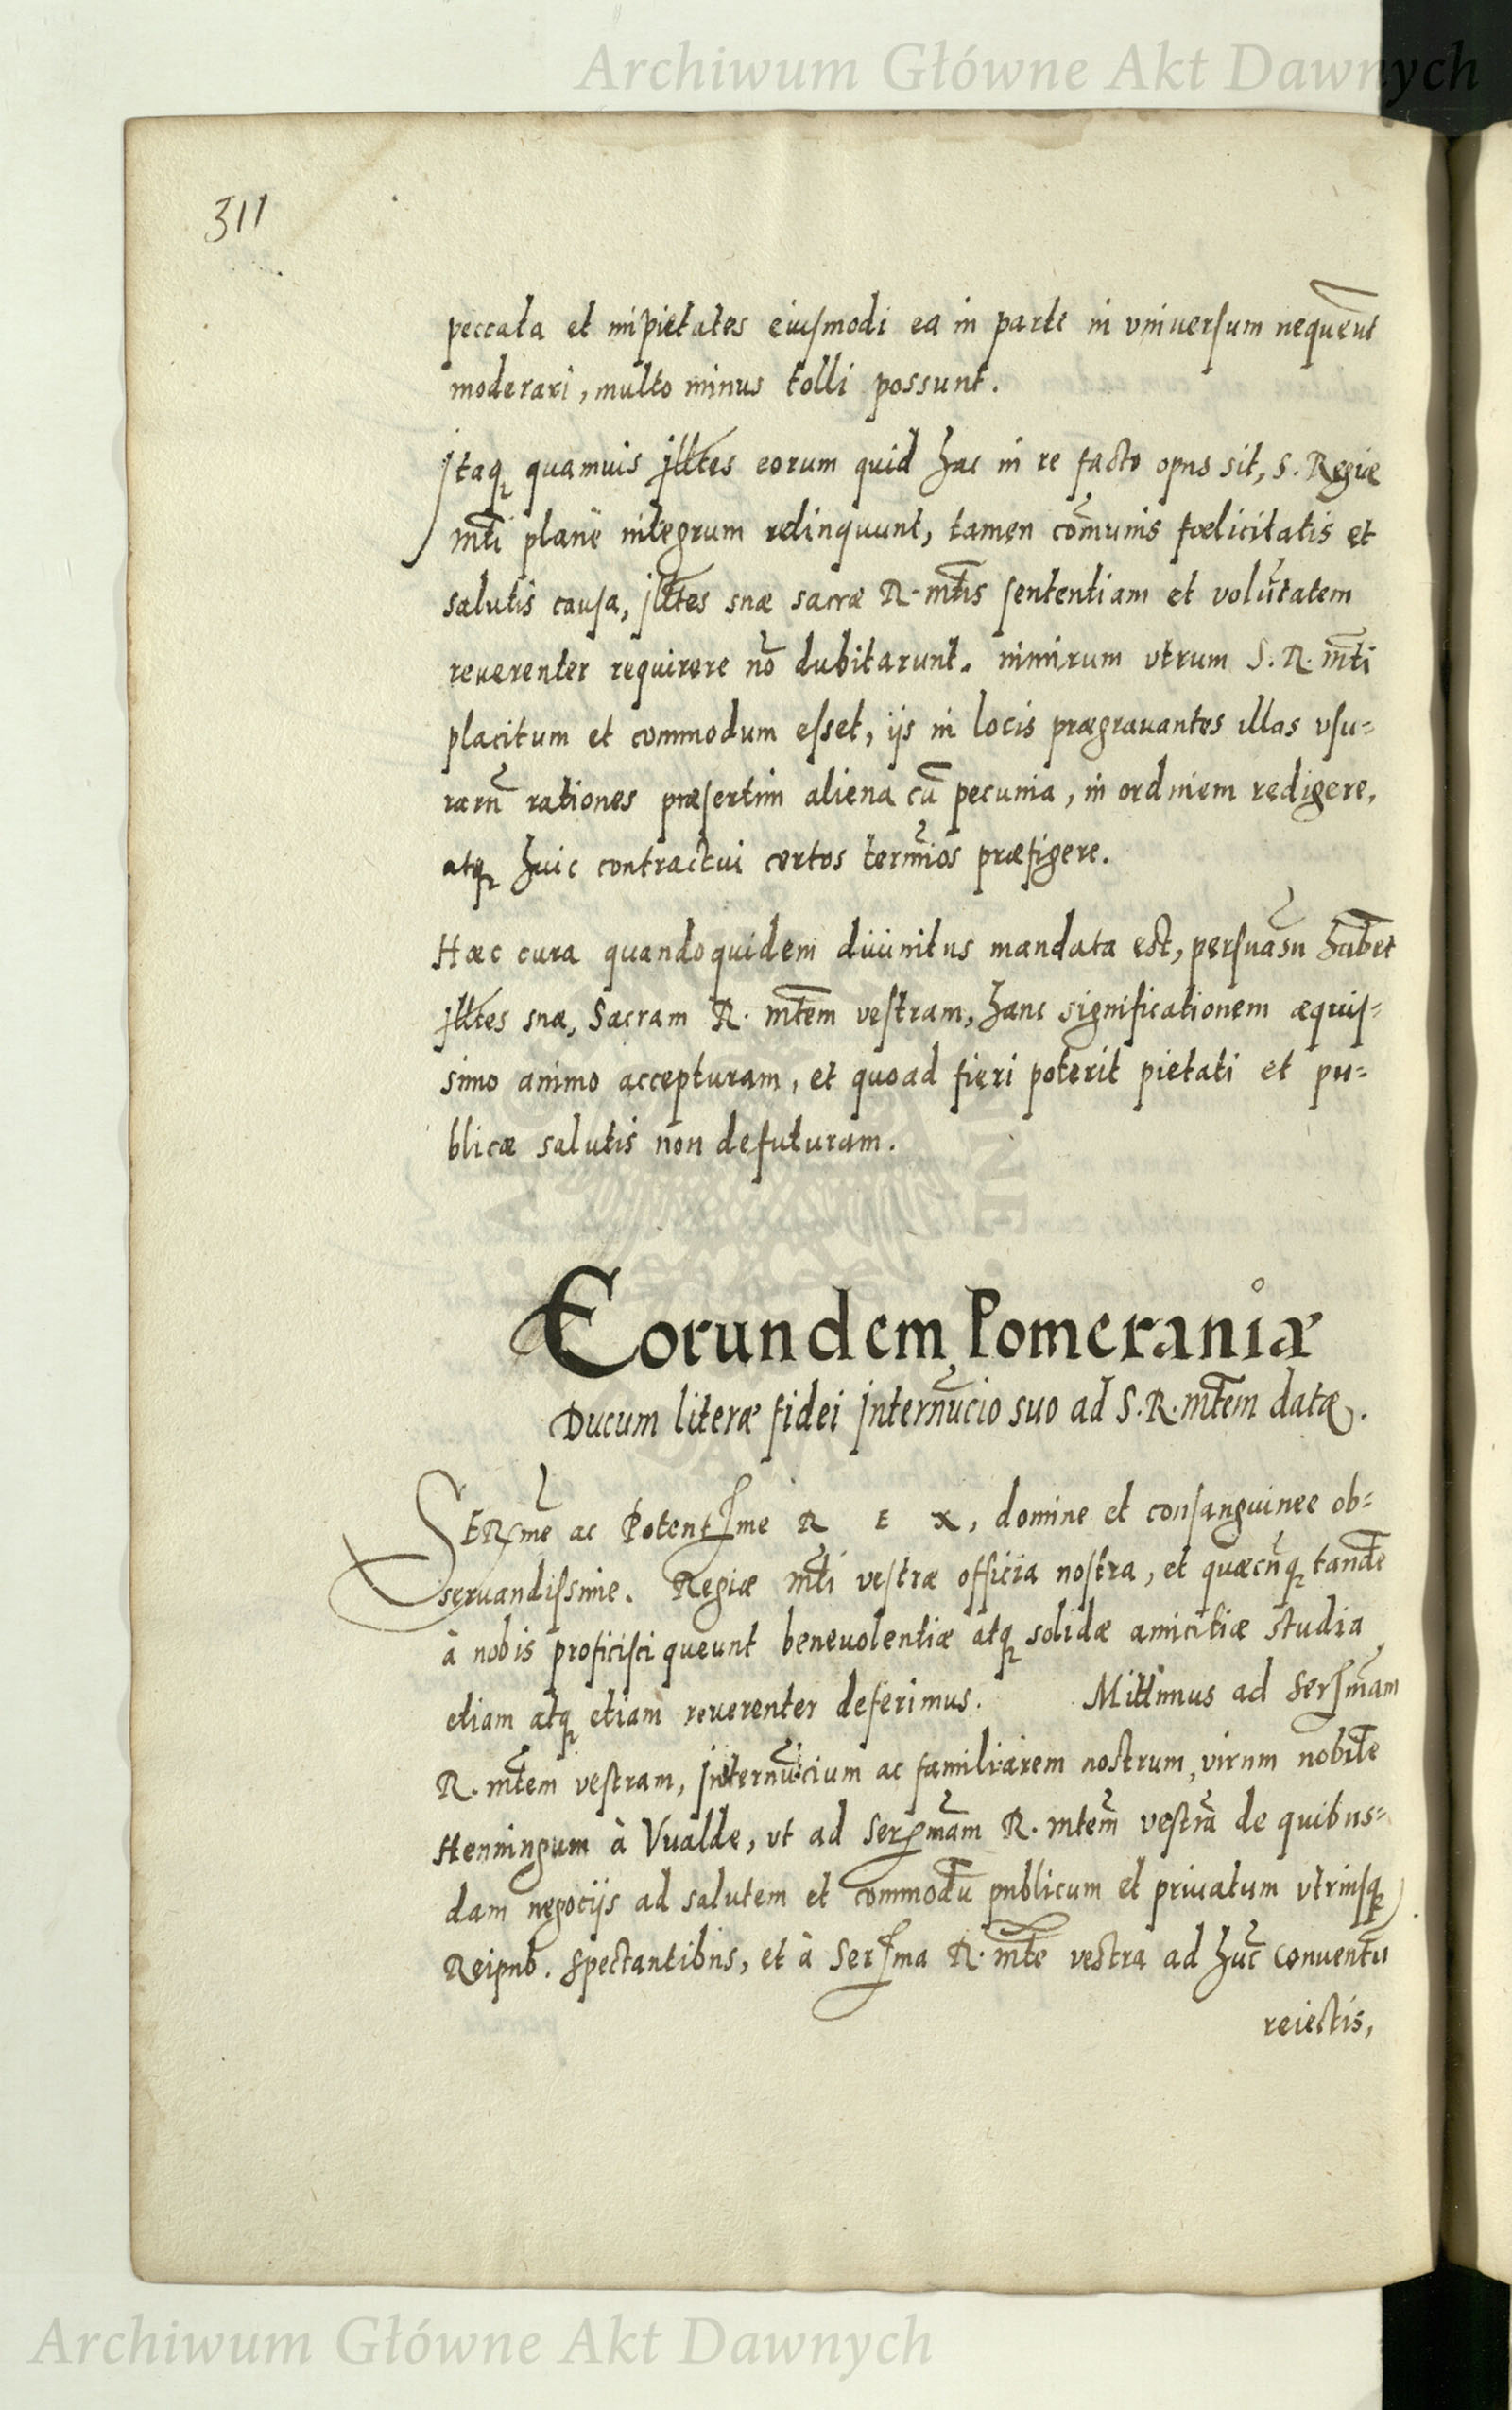 Archiwum Główne Akt Dawnych
311
peccata et impietates eiusmodi ea in parte in vniuersum nequeūt
moderari, multo minus tolli possunt.
Itaq̨ quamuis Illtes eorum quid hac in re facto opus sit, S. Regiæ
mt̄i planè integrum relinquunt, tamen com̄unis fœlicitatis et
salutis causa, Illtes suæ sacræ R. mt̄is sententiam et volūtatem
reuerenter requirere nō dubitarunt. nimirum vtrum S. R. mt̄i
placitum et commodum esset, ijs in locis prægrauantes illas vsu=
rarū rationes præsertim aliena cū pecunia, in ordinem redigere,
atq̨ huic contractui certos termīos præfigere.
Hæc cura quandoquidem diuinitus mandata est, persuasū habēt
Illtes suæ, Sacram R. mt̄em vestram, hanc significationem æquis=
simo animo accepturam, et quoad fieri poterit pietati et pu=
blicæ salutis non defuturam.
Eorundem Pomeraniæ
Ducum literæ fidei Internūcio suo ad S. R. mt̄em datæ.
SERsme ac Potentsme R E X, domine et consanguinee ob=
seruandissime. Regiæ mt̄i vestræ officia nostra, et quæcūq̨ tandē
à nobis proficisci queunt beneuolentiæ atq̨ solidæ amicitiæ studia
etiam atq̨ etiam reuerenter deferimus. Mittimus ad Sersmam
R. mt̄em vestram, Internūcium ac familiarem nostrum, virum nobilē
Henningum à Vualde, vt ad Sersmam R. mtem̄ vestrā de quibus=
dam negocijs ad salutem et commodū publicum et priuatum vtriusq̨
Reipub. spectantibus, et à Sersma R. mt̄e vestra ad hūc conuentū
reiectis,
Archiwum Główne Akt Dawnych